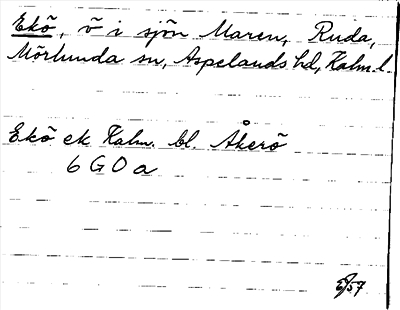 Ekö, ö i sjön Maren, Ruda,
Mörlunda sn, Aspelands hd, Kalm. l.
Ekö ek Kalm. bl. Åkerö
6 G 0 a